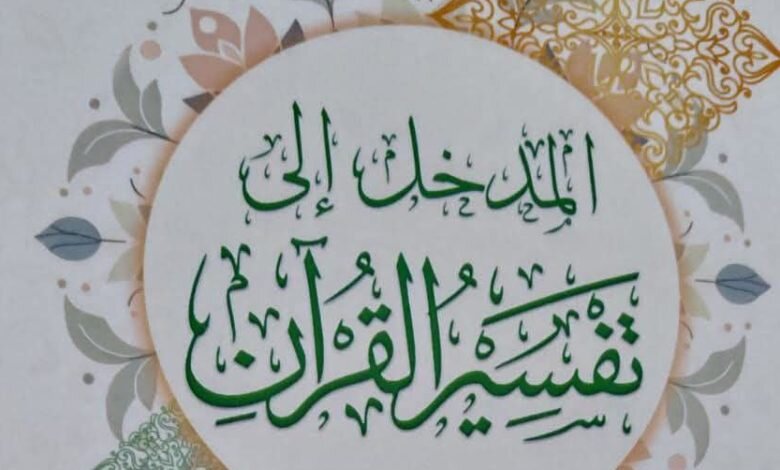 المدخل إلى
تَفْسِيرِ الْقُرْآنِ